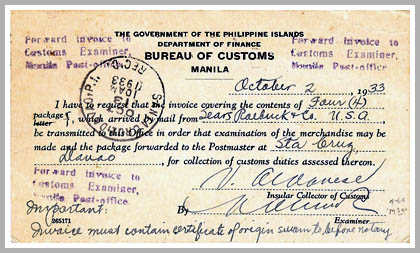 Forward invoice to
Customs Examiner,
Manila Post-office
THE GOVERNMENT OF THE PHILIPPINE ISLANDS
DEPARTMENT OF FINANCE
BUREAU OF CUSTOMS
MANILA
Forward invoice to
Customs Examiner,
Manila Post-office
October 2, 1933
I have to request that the invoice covering the contents of Four (4)
package
letter s, which arrived by mail from Sears Roebuck & Co. U.S.A.,
be transmitted to this office in order that examination of the merchandise may be
made and the package forwarded to the Postmaster at Sta Cruz
Davao, for collection of customs duties assessed thereon.
Forward invoice to
Customs Examiner,
Manila Post-office
V. Aldanese
Insular Collector of Customs
By
Examiner
Important:
265171
Invoice must contain certificate of origin sworn to before notary
STA. CRUZ
P.I.
OCT
10 AM
1933
REC'D